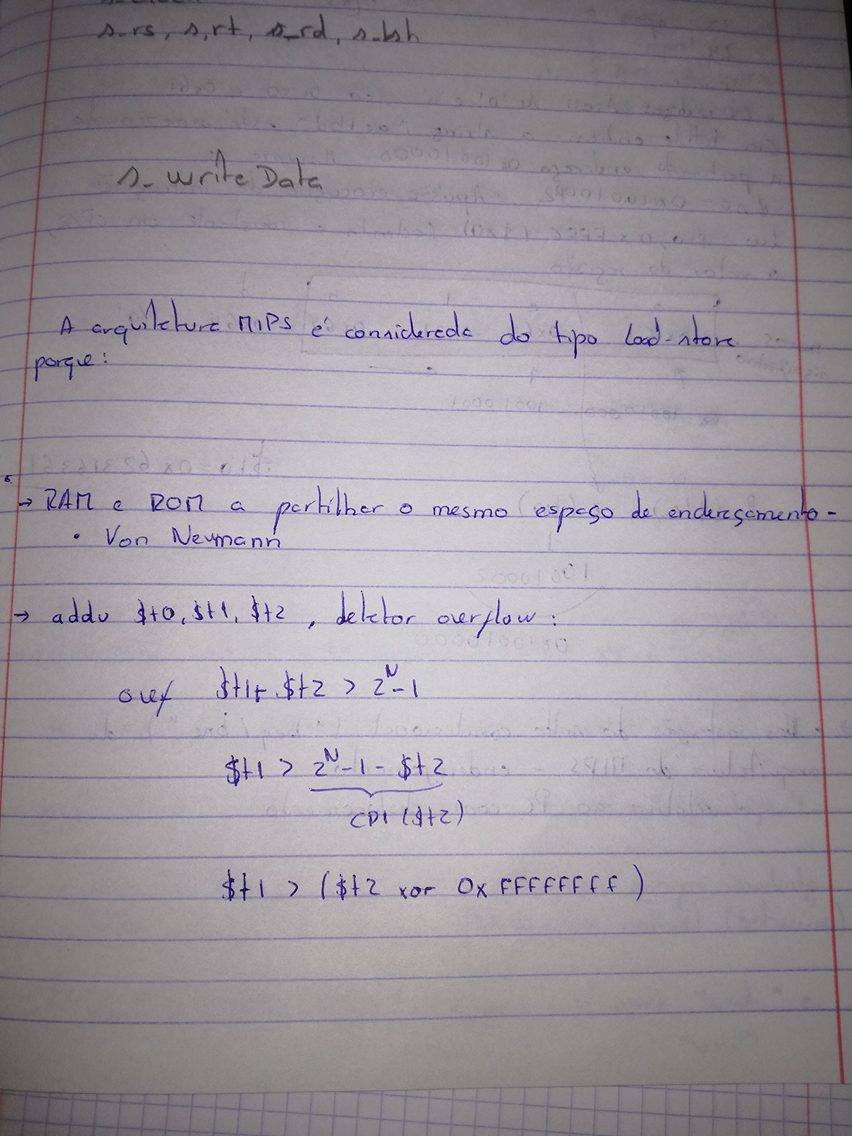 s_rs, s_rt, s_rd, s_lsh
s_ writeData
A arquitetura MIPS é considerada do tipo load-store
porque:
→ RAM e ROM a partilhar o mesmo espaço de endereçamento -
• Von Neumann
→ addu $t0, $t1, $t2, detetor overflow:
ovf $t1 + $t2 > 2^N - 1
$t1 > 2^N - 1 - $t2
CP1 ($t2)
$t1 > ($t2 xor 0xFFFFFFFF)